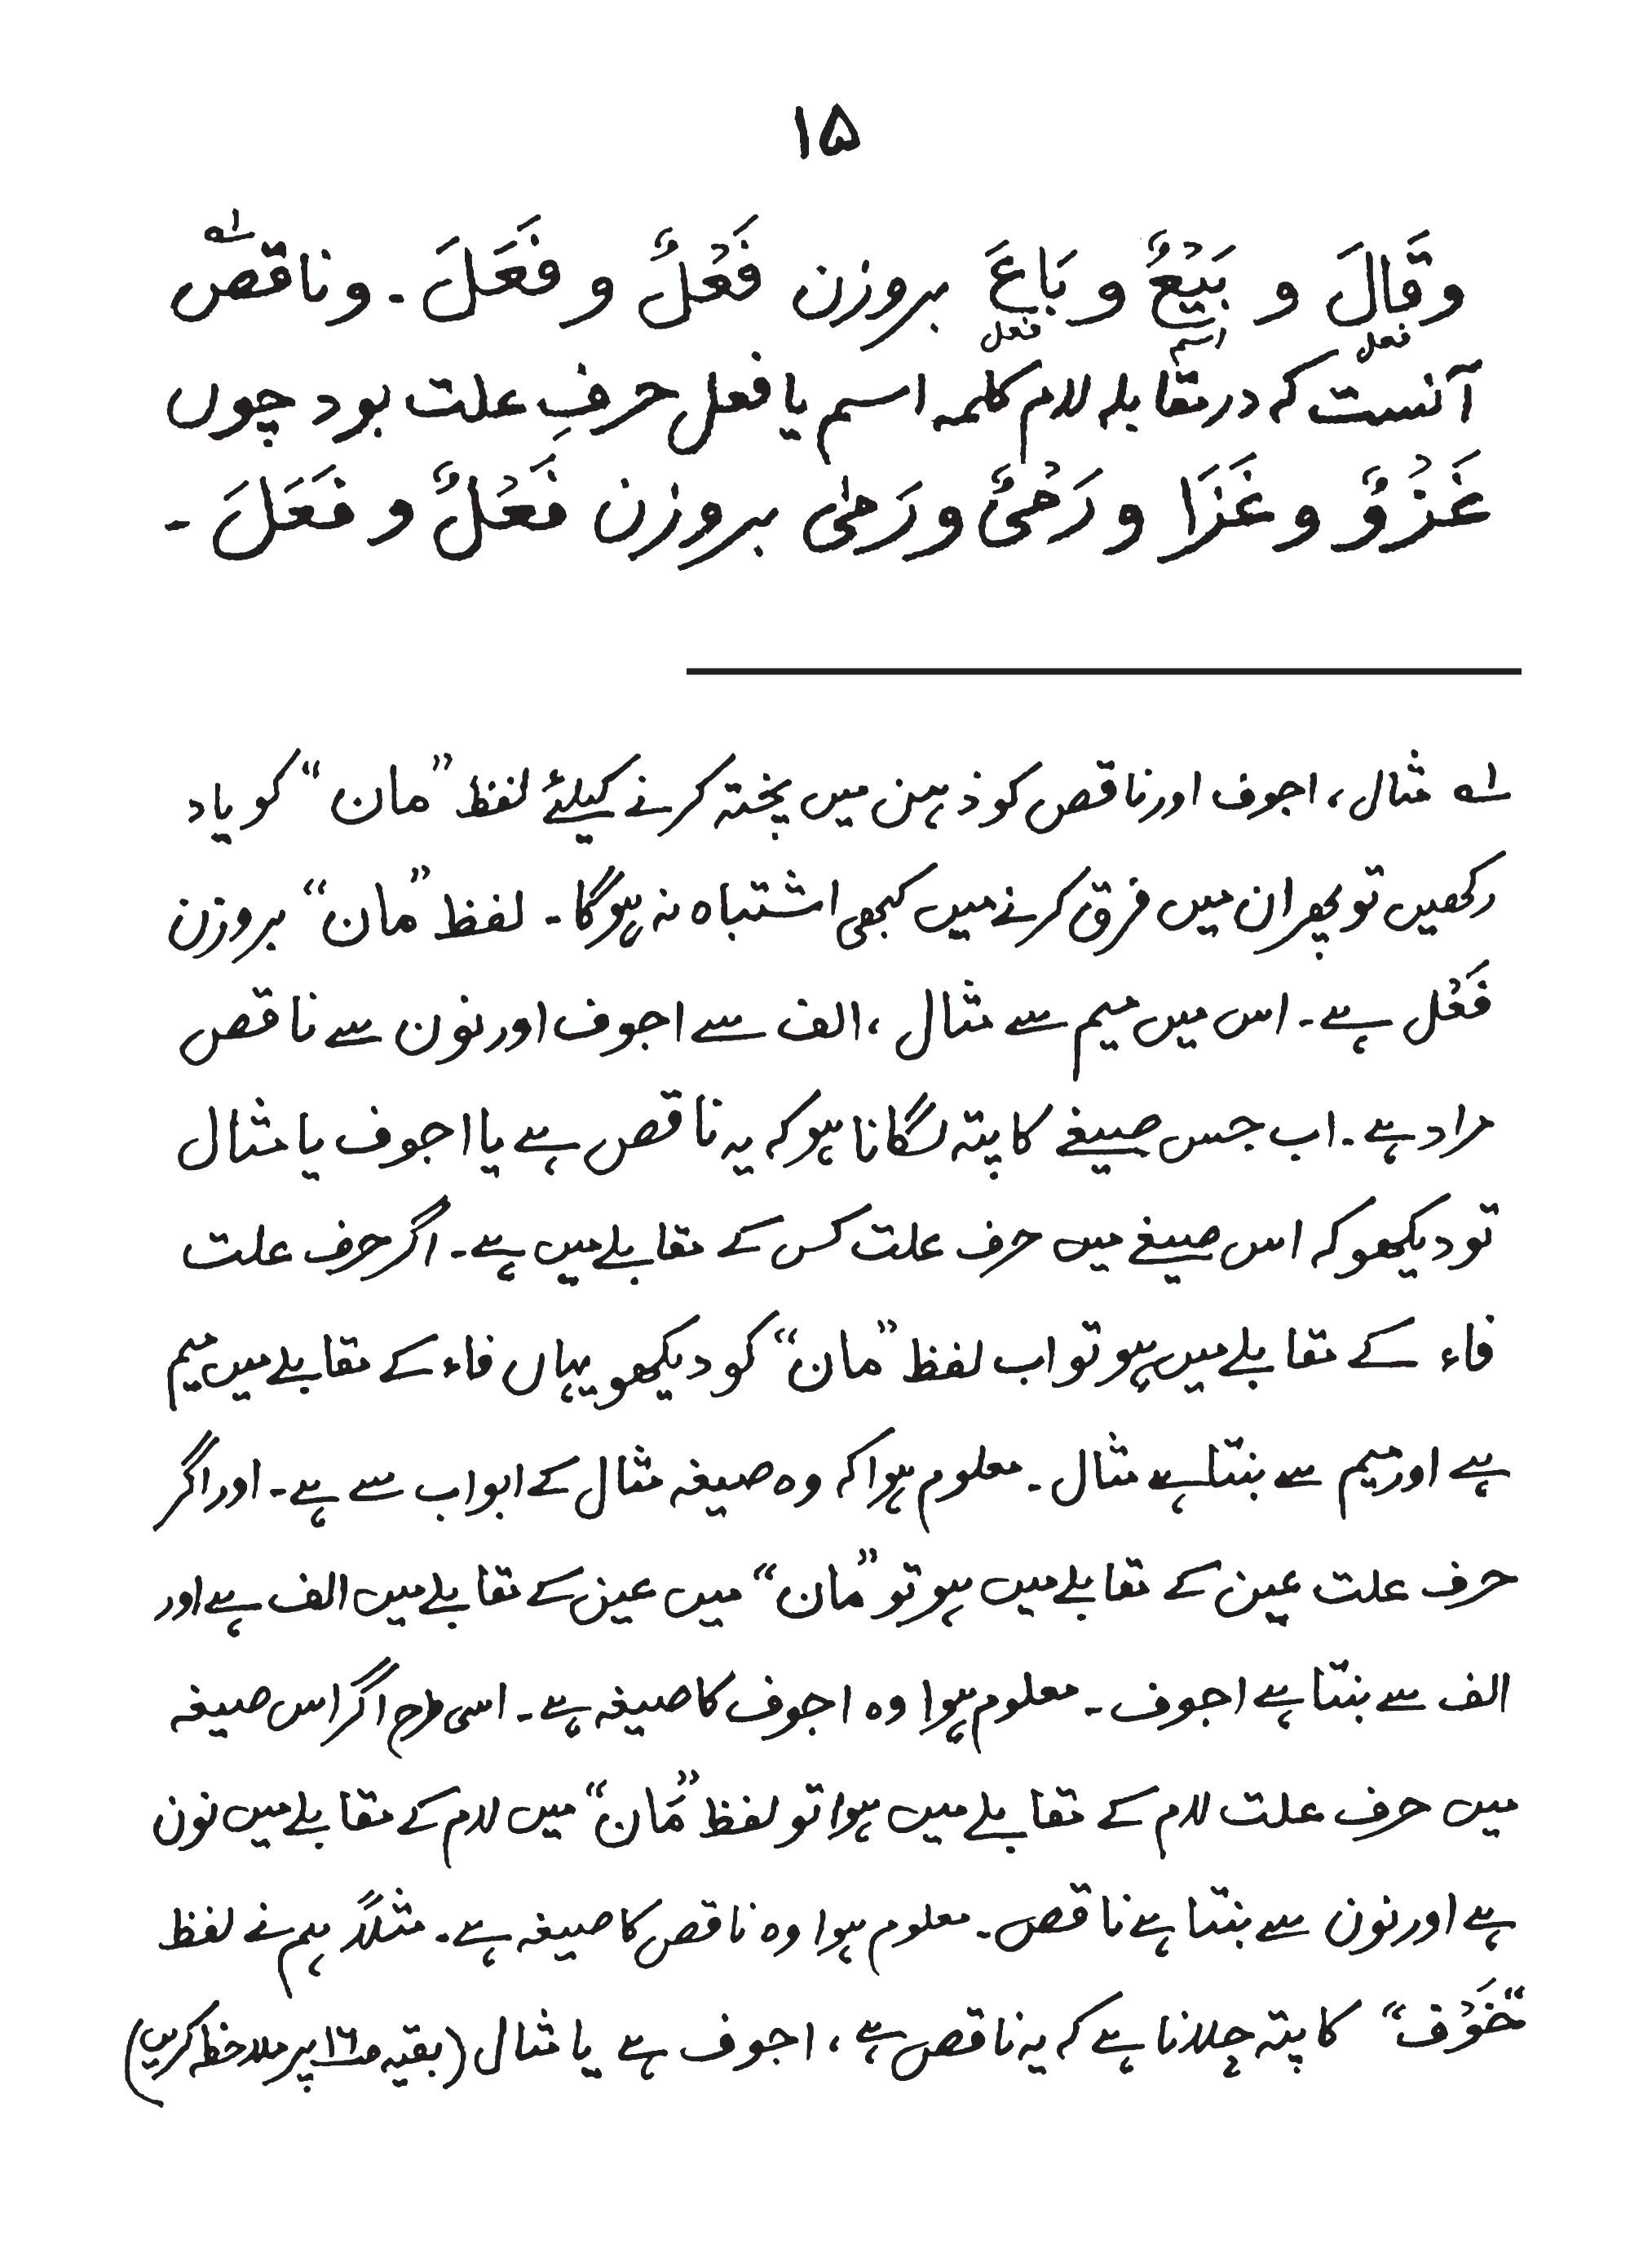 ۱۵
وقَالَ و بَيْعٌ و بَاعَ بروزن فَعْلٌ و فَعَلَ ۔ و ناقص ؎۱
فعل اسم فعل
آنست کہ در مقابلہ لام کلمہ اسم یا فعل حرفِ علت بود چوں
غَزْوٌ و غَزَا و رَمْیٌ و رَمٰی بروزن فَعْلٌ و فَعَلَ ۔
؎۱ مثال ، اجوف اور ناقص کو ذہن میں پختہ کرنے کیلئے لفظ ”مان“ کو یاد
رکھیں تو پھر ان میں فرق کرنے میں کبھی اشتباہ نہ ہوگا ۔ لفظ ”مان“ بروزن
فَعْل ہے ۔ اس میں میم سے مثال ، الف سے اجوف اور نون سے ناقص
مراد ہے ۔ اب جس صیغے کا پتہ لگانا ہو کہ یہ ناقص ہے یا اجوف یا مثال
تو دیکھو کہ اس صیغے میں حرف علت کس کے مقابلے میں ہے ۔ اگر حرف علت
فاء کے مقابلے میں ہو تو اب لفظ ”مان“ کو دیکھو یہاں فاء کے مقابلے میں میم
ہے اور میم سے بنتا ہے مثال ۔ معلوم ہوا کہ وہ صیغہ مثال کے ابواب سے ہے ۔ اور اگر
حرف علت عین کے مقابلے میں ہو تو ”مان“ میں عین کے مقابلے میں الف ہے اور
الف سے بنتا ہے اجوف ۔ معلوم ہوا وہ اجوف کا صیغہ ہے ۔ اسی طرح اگر اس صیغہ
میں حرف علت لام کے مقابلے میں ہوا تو لفظ ”مَان“ میں لام کے مقابلے میں نون
ہے اور نون سے بنتا ہے ناقص ۔ معلوم ہوا وہ ناقص کا صیغہ ہے ۔ مثلاً ہم نے لفظ
”خَوْف“ کا پتہ چلانا ہے کہ یہ ناقص ہے ، اجوف ہے یا مثال (بقیہ صـ۱۶ پر ملاحظہ کریں)